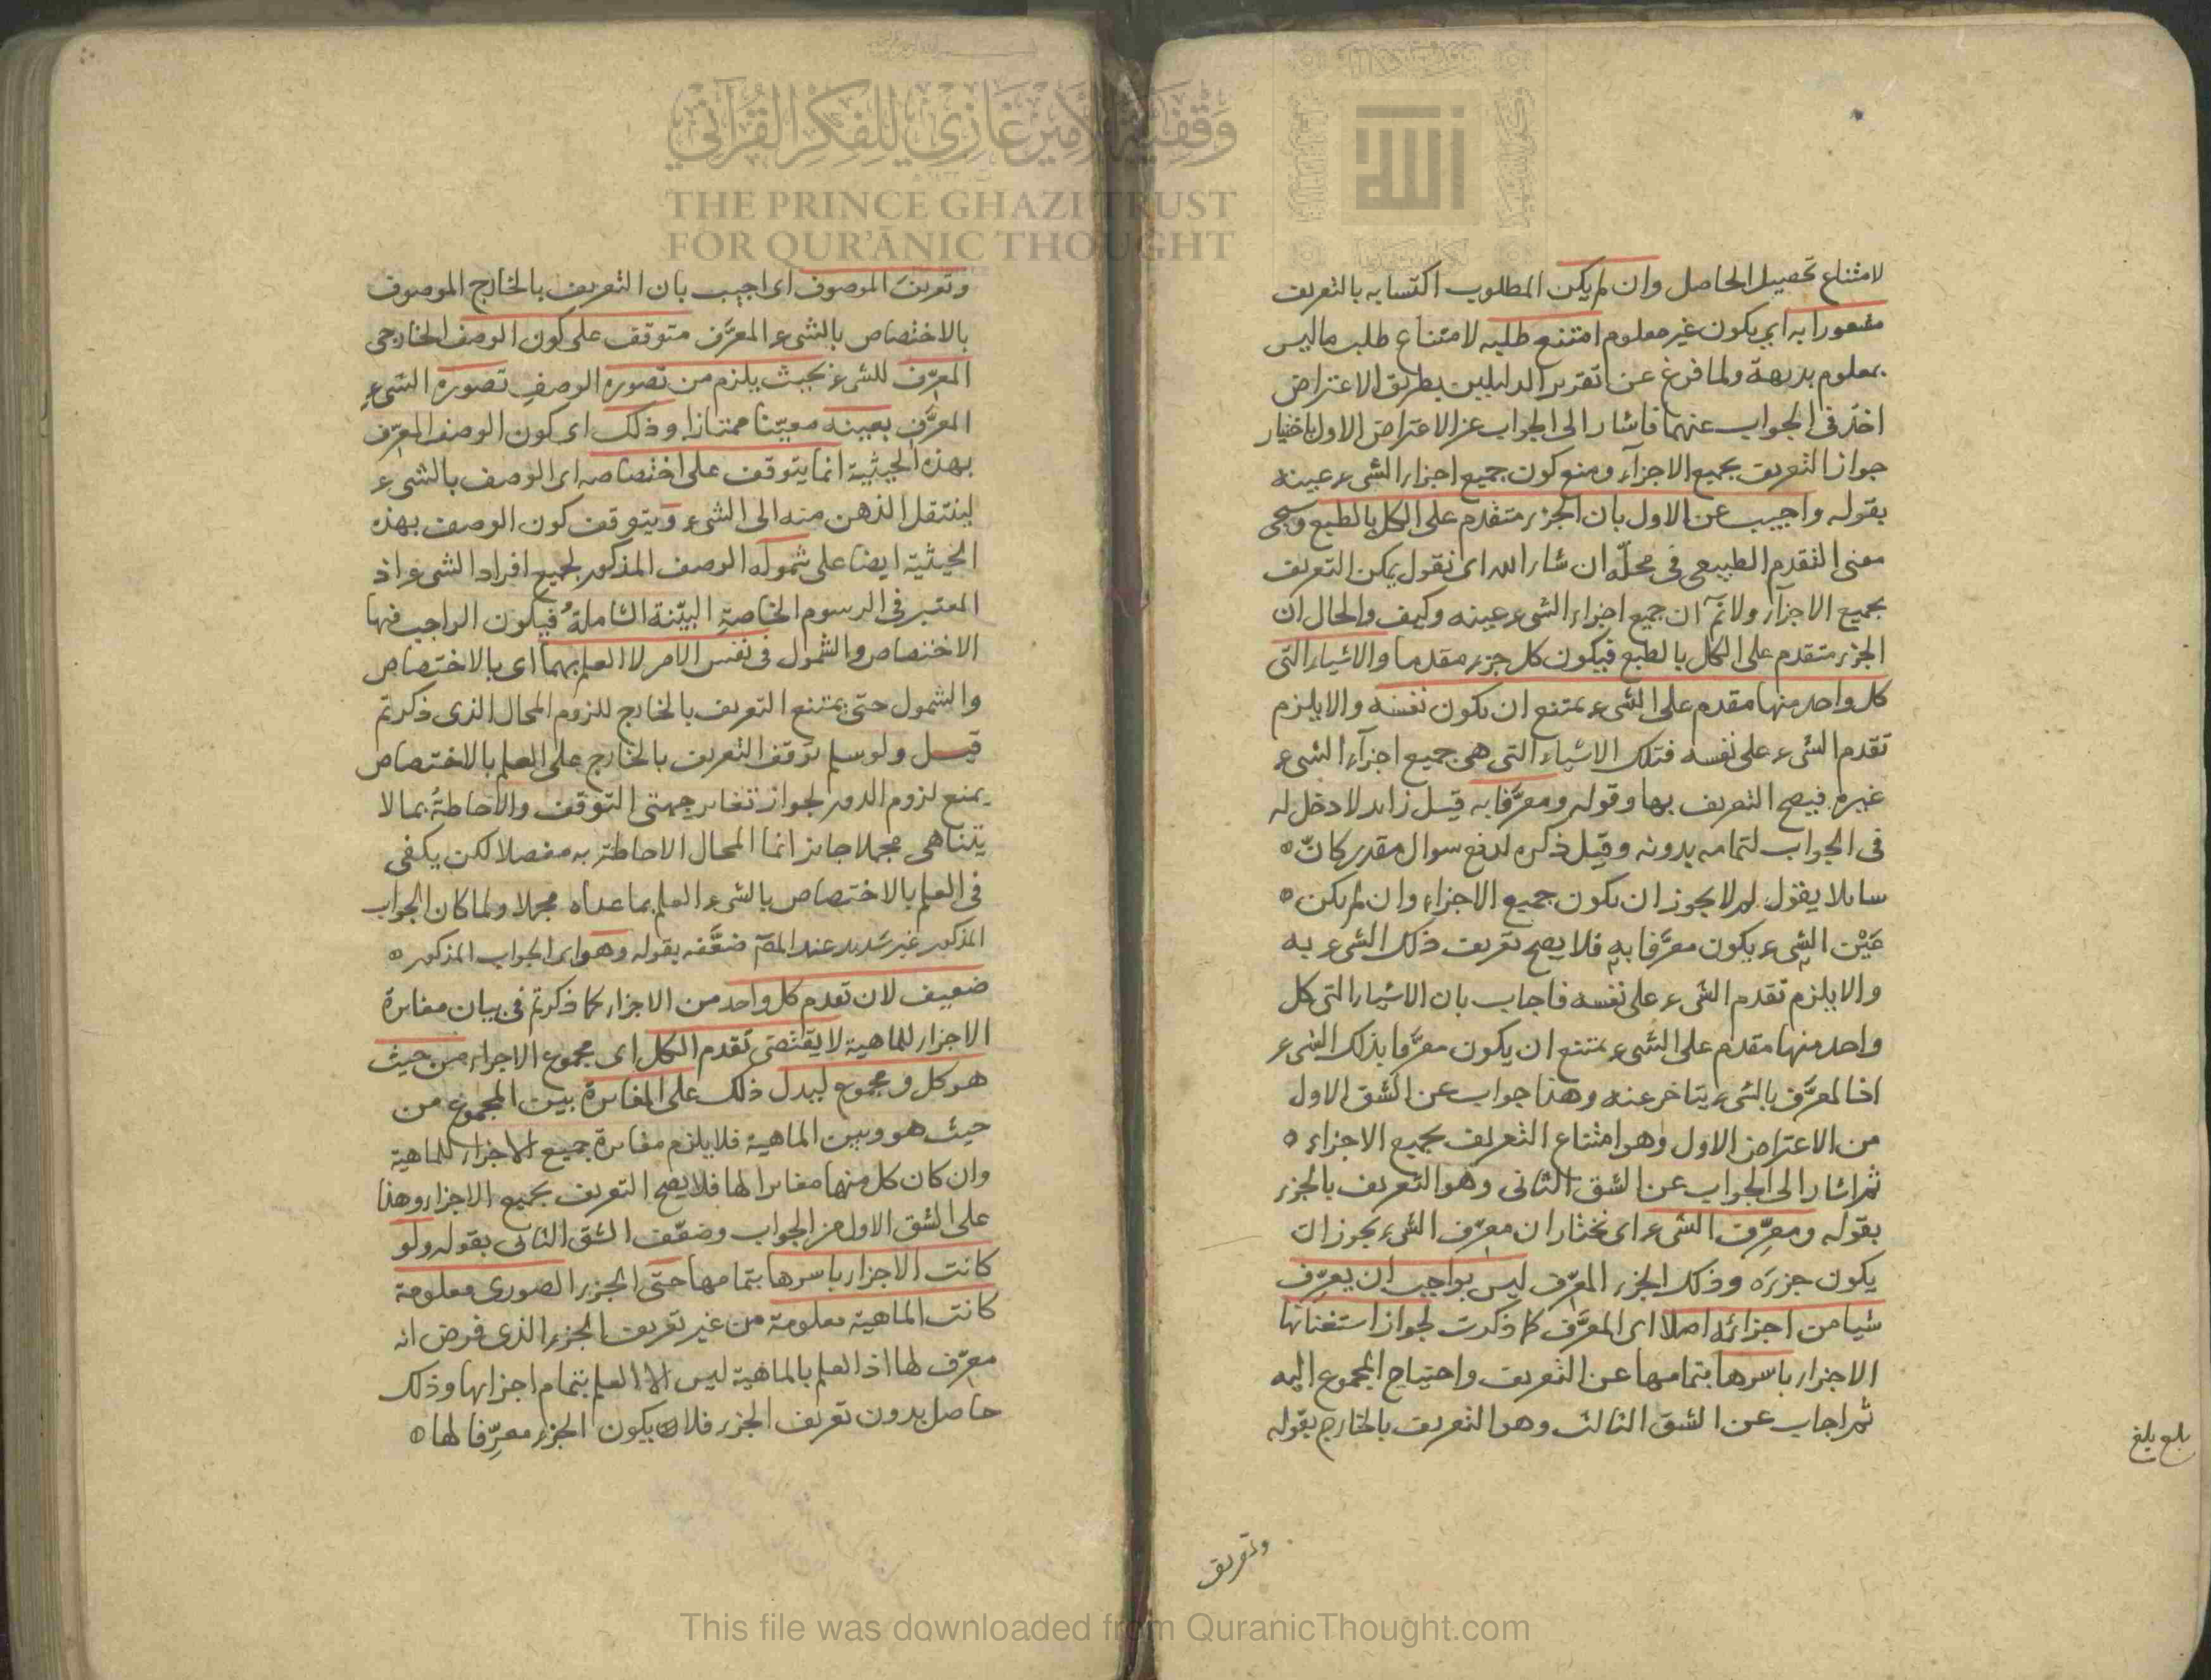 وقفية الأمير غازي للفكر القرآني
THE PRINCE GHAZI TRUST
FOR QUR'ĀNIC THOUGHT
الله
لامتناع تحصيل الحاصل وان لم يكن المطلوب اكتسابه بالتعريف
مشعورا به اى يكون غير معلوم امتنع طلبه لامتناع طلب ما ليس
بمعلوم بديهة ولما فرغ عن تقرير الدليلين بطريق الاعتراض
اخذ فى الجواب عنهما فاشار الى الجواب عن الاعتراض الاول باختيار
جواز التعريف بجميع الاجزاء ومنع كون جميع اجزاء الشىء عينه
بقوله واجيب عن الاول بان الجزء متقدم على الكل بالطبع وسيجى
معنى التقدم الطبيعى فى محله ان شاء الله اى نقول يمكن التعريف
بجميع الاجزاء ولانم ان جميع اجزاء الشىء عينه وكيف والحال ان
الجزء متقدم على الكل بالطبع فيكون كل جزء مقدما والاشياء التى
كل واحد منها مقدم على الشىء يمتنع ان تكون نفسه والا يلزم
تقدم الشىء على نفسه فتلك الاشياء التى هى جميع اجزاء الشىء
غيره فيصح التعريف بها وقوله ومعرفا به قيل زايد لا دخل له
فى الجواب لتمامه بدونه وقيل ذكره لدفع سوال مقدر كان
سايلا يقول لم لا يجوز ان يكون جميع الاجزاء وان لم يكن
عين الشىء يكون معرفا به فلا يصح تعريف ذلك الشىء به
والا يلزم تقدم الشىء على نفسه فاجاب بان الاشياء التى كل
واحد منها مقدم على الشىء يمتنع ان يكون معرفا بذلك الشىء
اذ المعرف بالشىء يتاخر عنه وهذا جواب عن الشق الاول
من الاعتراض الاول وهو امتناع التعريف بجميع الاجزاء
ثم اشار الى الجواب عن الشق الثانى وهو التعريف بالجزء
بقوله ومعرف الشىء اى نختار ان معرف الشىء يجوز ان
يكون جزءه وذلك الجزء المعرف ليس بواجب ان يعرف
شيا من اجزائه اصلا اى المعرف كما ذكرت لجواز استغنائها
الاجزاء باسرها بتمامها عن التعريف واحتياج المجموع اليه
ثم اجاب عن الشق الثالث وهو التعريف بالخارج بقوله
وتعريف
وتعريف الموصوف اى اجيب بان التعريف بالخارج الموصوف
بالاختصاص بالشىء المعرف متوقف على كون الوصف الخارجى
المعرف للشىء بحيث يلزم من تصوره الوصف تصوره الشىء
المعرف بعينه معينا ممتازا وذلك اى كون الوصف المعرف
بهذه الحيثية انما يتوقف على اختصاصه اى الوصف بالشىء
لينتقل الذهن منه الى الشىء ويتوقف كون الوصف بهذه
الحيثية ايضا على شموله الوصف المذكور لجميع افراد الشىء اذ
المعتبر فى الرسوم الخاصة البينة الشاملة فيكون الواجب فيها
الاختصاص والشمول فى نفس الامر لا العلم بهما اى بالاختصاص
والشمول حتى يمتنع التعريف بالخارج للزوم المحال الذى ذكرتم
قيل ولو سلم توقف التعريف بالخارج على العلم بالاختصاص
يمنع لزوم الدور لجواز تغاير جهتى التوقف والاحاطة بما لا
يتناهى مجملا جايز انما المحال الاحاطة به مفصلا لكن يكفى
فى العلم بالاختصاص بالشىء العلم بما عداه مجملا ولما كان الجواب
المذكور غير سديد عند المص ضعفه بقوله وهو اى الجواب المذكور
ضعيف لان تقدم كل واحد من الاجزاء كما ذكرتم فى بيان مغايرة
الاجزاء للماهية لا يقتضى تقدم الكل اى مجموع الاجزاء من حيث
هو كل ومجموع ليدل ذلك على المغايرة بين المجموع من
حيث هو وبين الماهية فلا يلزم مغايرة جميع الاجزاء للماهية
وان كان كل منها مغايرا لها فلا يصح التعريف بجميع الاجزاء وهذا
على الشق الاول من الجواب وضعف الشق الثانى بقوله ولو
كانت الاجزاء باسرها بتمامها حتى الجزء الصورى معلومة
كانت الماهية معلومة من غير تعريف الجزء الذى فرض انه
معرف لها اذ العلم بالماهية ليس الا العلم بتمام اجزائها وذلك
حاصل بدون تعريف الجزء فلا يكون الجزء معرفا لها
This file was downloaded from QuranicThought.com